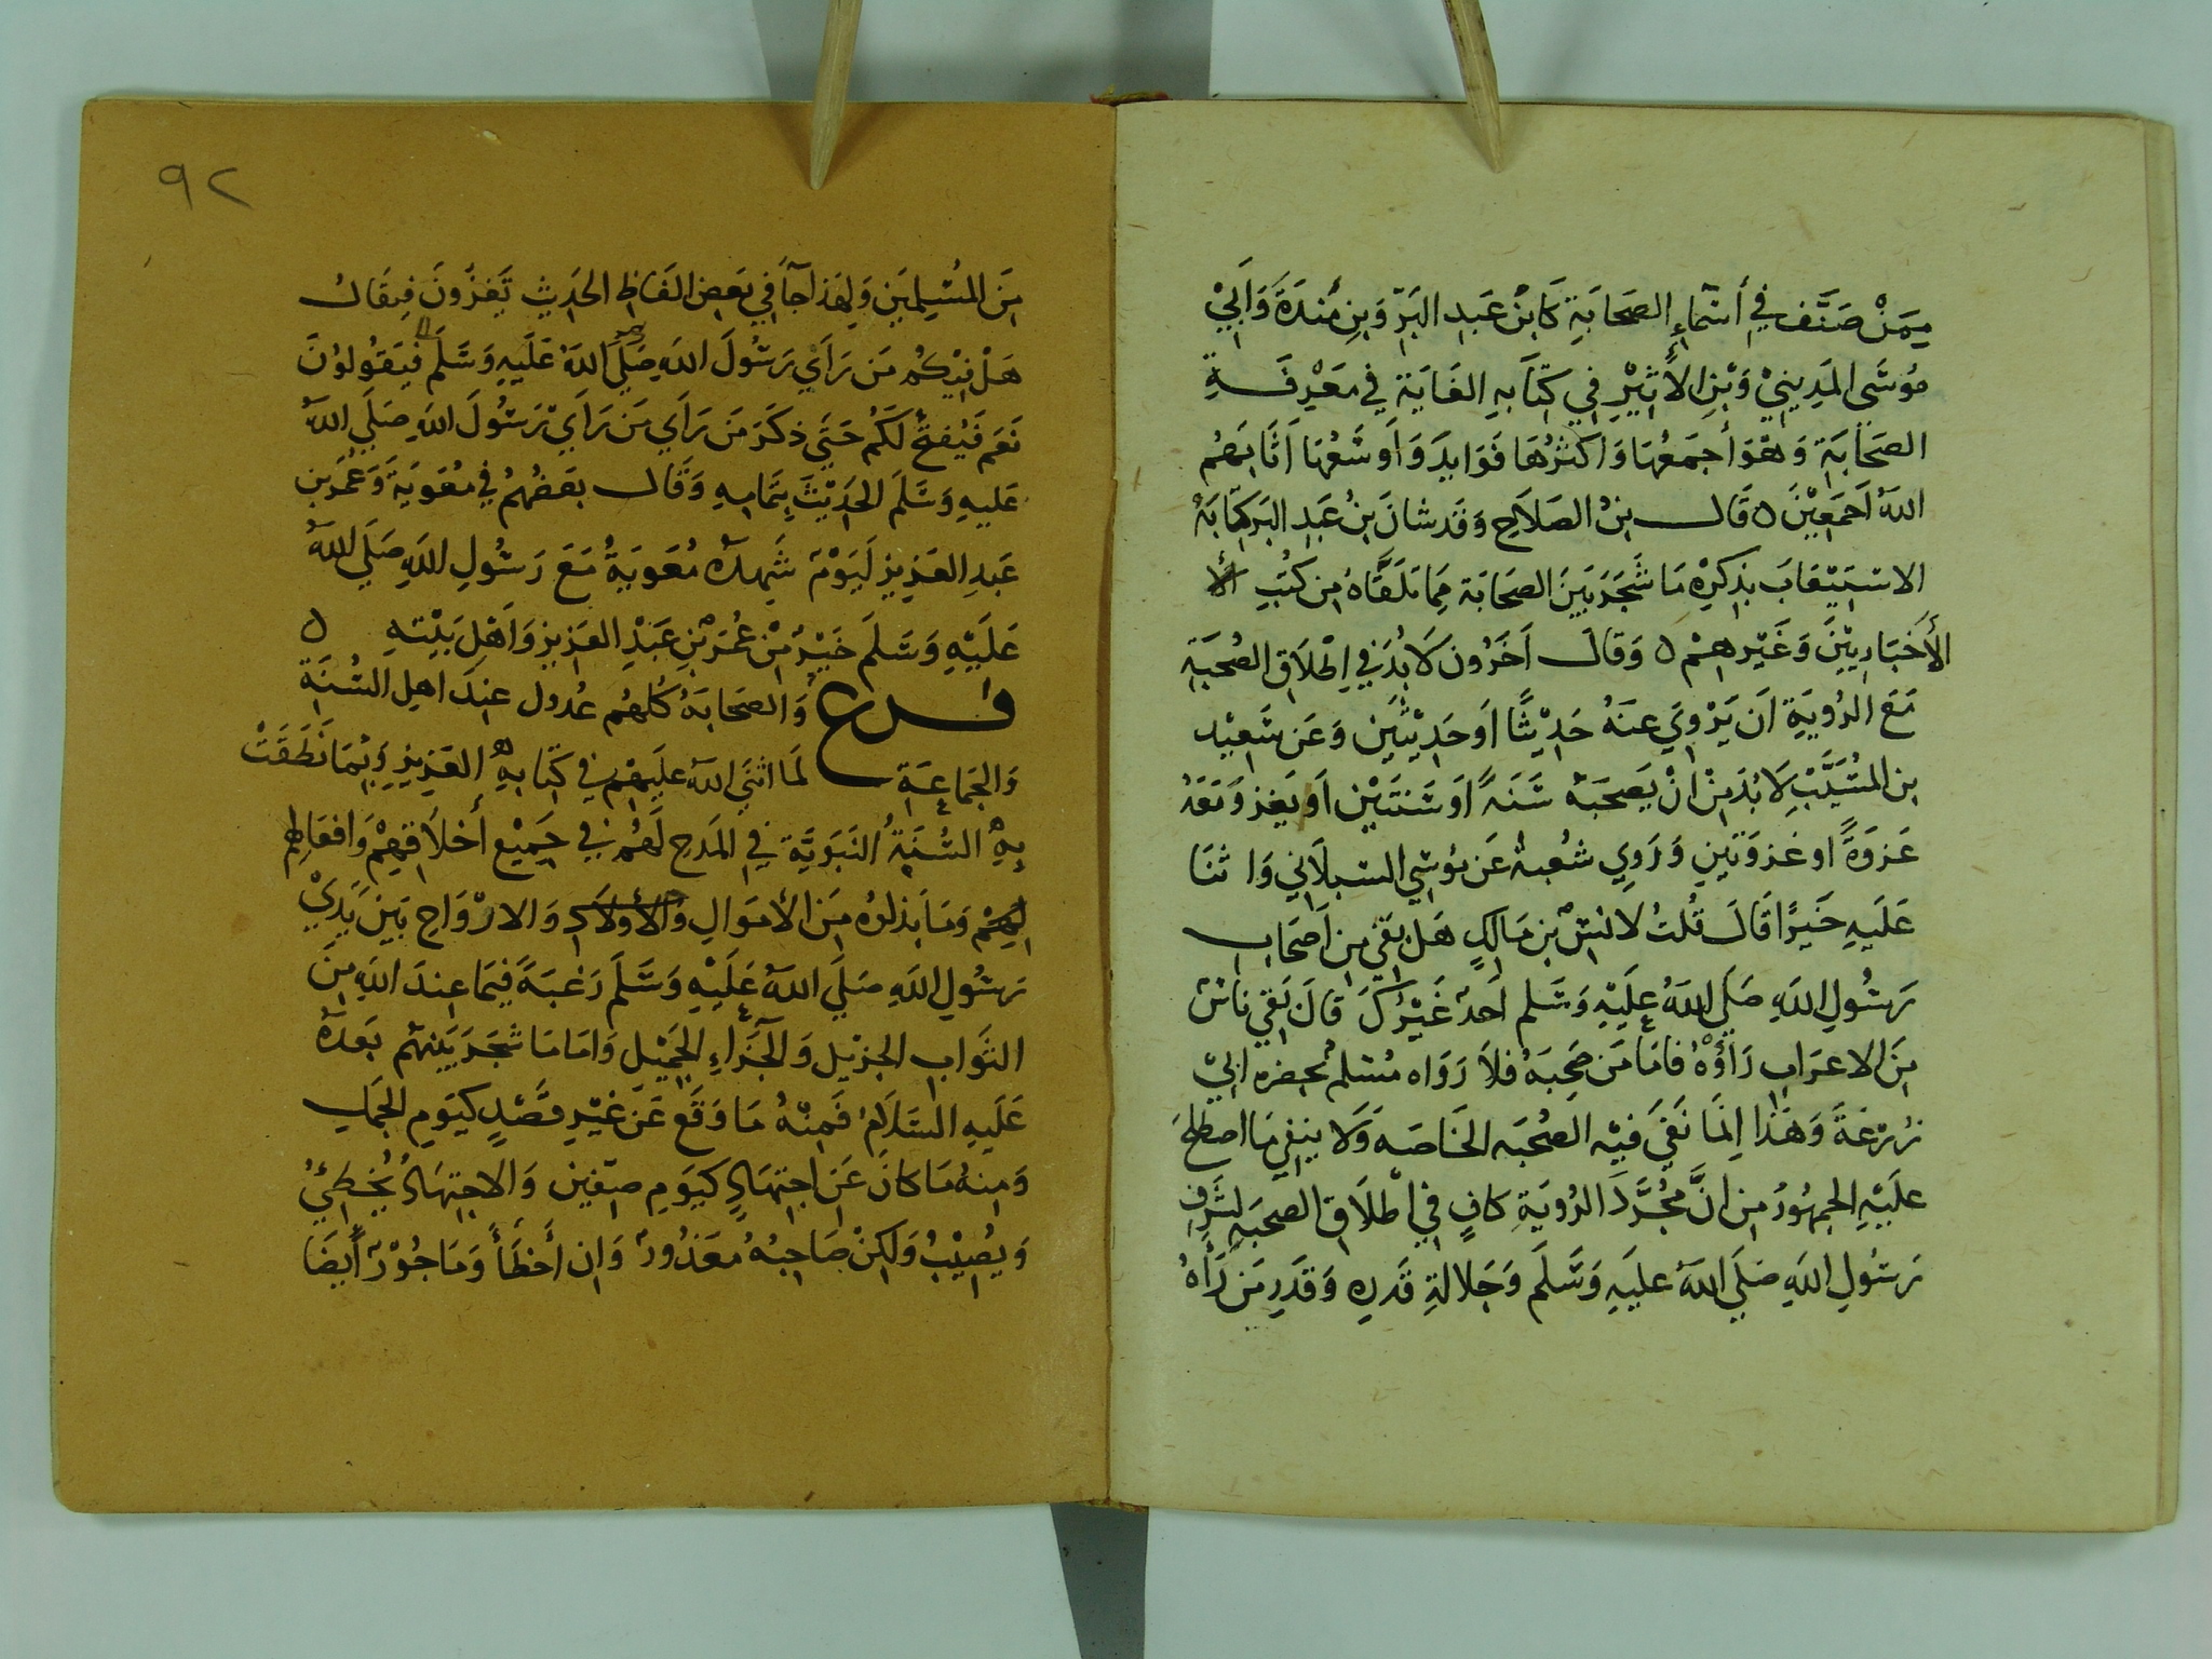 مِمَنْ صَنَّف فِي أَسْمَاءِ الصَحَابَةِ كَابْنُ عَبدِ البَرِّ وَبنِ مَندَةَ وَابَيْ
مُوسَى المَدِينِيْ وَبْنِ الأَثِيْرِ فِي كِتَابِهِ الغَايَة فِي مَعْرِفَةِ
الصَحَابَة وَهْوَ أجمَعُهَا وَاكثَرُهَا فَوَايدَ وَأوسَعُهَا اَثَابَهُم
اللهُ اَجمَعِيْنَ ٥ قَال بنُ الصَلاَحِ وَقَد شانَ بنُ عَبدِ البَر كِتَابَهُ
الاستِيْعَابَ بذِكرِهْ مَا شَجَرَ بَيَنَ الصَحَابَة مِمَا تَلَقَّاهُ مِن كتُبِ
الأَخبَارِيِّيْنَ وَغَيْرهِمْ ٥ وَقالَ اَخَرُون لاَ بُدَ فِي اِطْلاَقِ الصُحبَةِ
مَعَ الرُويَةِ اَن يَرْوِيَ عنَهُ حَدِيْثًا اَو حَدِيْثَيَن وَعَن سَعِيْد
بن المُسَيَّبِ لاَ بُدَ مِنْ انْ يَصحَبَهُ سَنَةً اَو سَنَتَيْن اَو يَغزو مَعَهُ
غَزوَةً او غزوَتَينِ وَرَوِي شُعبة عَن مُوسَي السبلاَنِي وَاثنَا
عَلَيهِ خَيرًا قَالَ قُلتُ لانسْ بْن مَالِكٍ هَل بَقيَ مِن اَصحَاب
رَسُولِ اللهِ صَلَي اللهُ عَلَيْهِ وَسَلم اَحدٌ غَيْرُكَ قَالَ بَقِي نَاسٌ
مِنَ الاعرَابِ رَأَوْهُ فامَا مَن صَحِبَهُ فلاَ رَوَاه مُسْلم بحضره ابي
زُرْعَةَ وَهَذا اِنَمَا نَفَيَ فَيْه الصُحْبَه الخَاصَه وَلاَ يَنِفي مَا اصطلحَ
علَيْهِ الجمهُورُ مِن انَّ مجُرَّدَ الرُويَةِ كافٍ فِي اطْلاَقِ الصحبَه لِشَرفِ
رَسُولِ اللهِ صَلَي اللهُ علَيَهِ وَسَّلَم وَجَلالةِ قَدرِه وَقَدَرِ مَن رَأهُ
٩٢
مِنَ المُسْلِمِيَن وَلِهَذا جَآ فِي بَعض الفَاظِ الحَدِيثِ تَغزُونَ فيقَال
هَلْ فِيْكُم مَن رَاَي رَسُولَ اللهِ صَلَي اللهُ عَلَيهِ وَسَّلَم فيَقُولوْنَ
نَعَم فَيُفتحُ لَكُم حَتَيَ ذكَرَ مَن رَاَي مَن رَاَي رَسُولَ اللهِ صَلَي اللهُ
عَليهِ وَسَلَم الحَدِيْثَ بِتَمَامِهِ وَقَال بعَضُهُمُ فِي مُعَوِيَةَ وَعُمَرَ بنِ
عَبدِ العَزِيزِ لَيَوْمٌ شَهِدَهُ مُعَوِيَةُ مَعَ رَسُولِ اللهِ صَلَي اللهُ
عَلَيْهِ وَسَّلَم خَيْرٌ مِنْ عُمَرَ بْنِ عَبْدِ العَزِيز وَاَهْلِ بَيْتِهِ ٥
فرع وَالصَحَابَهُ كُلهُم عُدول عندَ اهل السُنَةِ
وَالجَمَاعَةِ لمَا اثنَى اللهُ عَلَيهِم فِي كتَابهِ العَزِيزِ وَبُمَا نَطَقَتْ
بِهِ السُنَةُ النَبَوِيَّة فِي المَدحِ لَهُم فِي جَمِيْع أَخلاَقِهِمْ وَافعَالِهم
وَمَا بَذلوُه مِنَ الأَموَالِ وَالارْوَاحِ بَيَن يَدَيْ
رَسُولِ اللهِ صَلَي اللهُ عَلَيْهِ وَسَّلَم رَغبَةَ فِيمَا عندَ اللهِ مِنَ
الثَوَابِ الجزِيْلِ وَالجَزاءِ الجَمِيْلِ وَامَا مَا شَجَرَ بَيْنَهُم بَعدَهُ
عَلَيهِ السَلاَمُ فَمِنْهُ مَا وَقَعَ عَن غَيْرِ قصْدٍ كيَومِ الجَمَلِ
وَمِنهُ مَا كانَ عَن اجتِهَادٍ كَيَومِ صِفّين وَالاجتِهَادُ يُخطِئُ
وَيُصِيْبُ وَلَكِنْ صَاحِبُهُ مُعَذُورٌ وَاِن أخطَأَ وَمَاجُوْرٌ أَيضَا